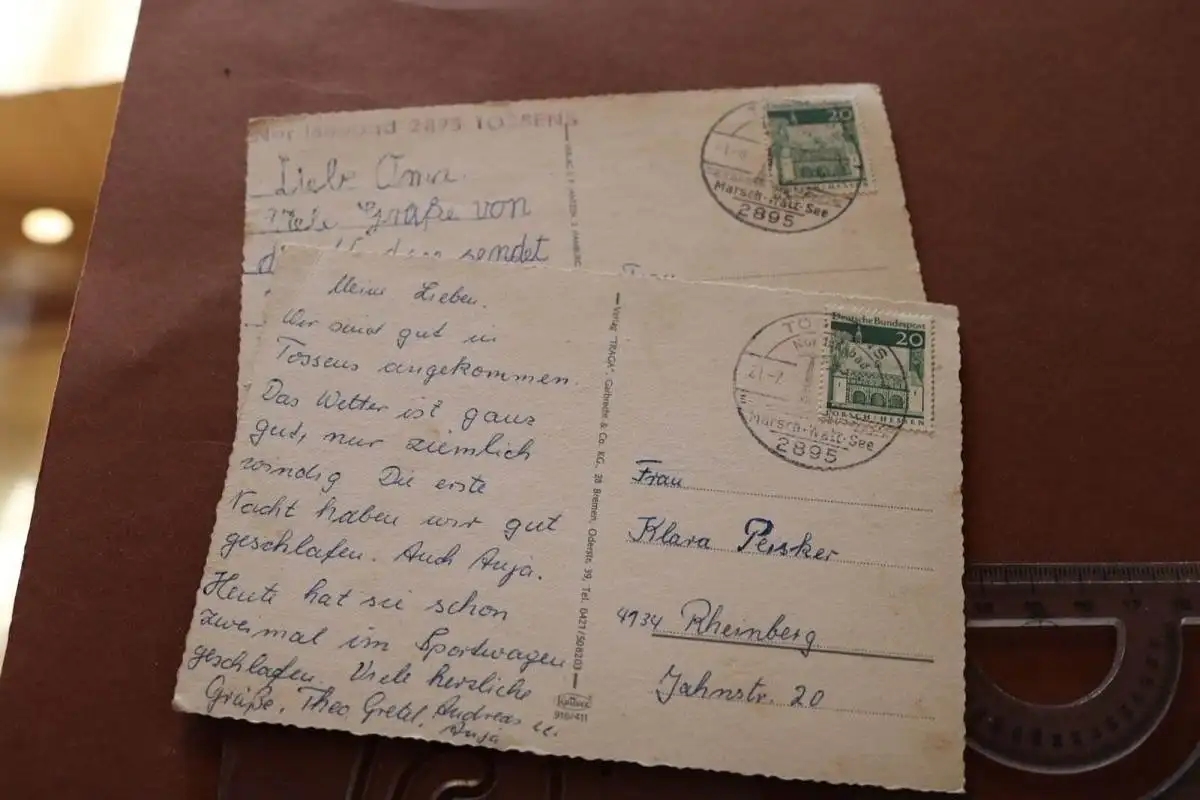 2895 TOSSENS
Liebe Oma.
Viele Grüße von
sendet
Frau
20
Marsch-Watt-See
2895
Meine Lieben.
Wir sind gut in
Tossens angekommen.
Das Wetter ist ganz
gut, nur ziemlich
windig Die erste
Nacht haben wir gut
geschlafen. Auch Anja.
Heute hat sie schon
zweimal im Sportwagen
geschlafen. Viele herzliche
Grüße, Theo Gretel, Andreas u.
Anja
Verlag "TRAGA", Garbrecht & Co. KG, 28 Bremen, Oderstr. 39, Tel. 0421/508203
Krüger
916/411
21.-7.
Marsch-Watt-See
2895
Deutsche Bundespost
20
LORSCH/HESSEN
Frau
Klara Pesker
4134 Rheinberg
Jahnstr. 20